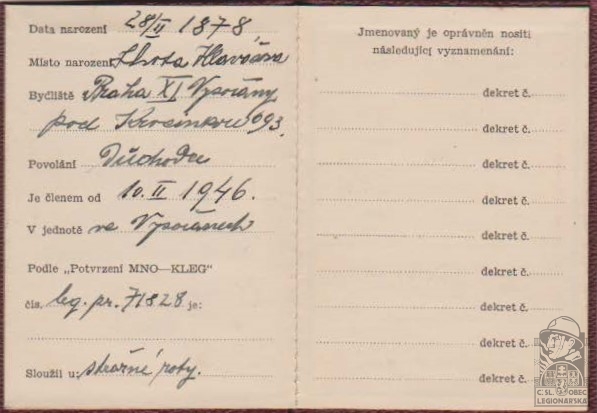 Data narození 28/II 1878
Místo narození Lhota Hlavačova
Bydliště Praha XI Vysočany
pod Krocínkou 993.
Povolání Důchodce
Je členem od 10. II 1946.
V jednotě ve Vysočanech
Podle „Potvrzení MNO—KLEG"
čís. leg. pr. 71828 je:
Sloužil u: strážné roty.
Jmenovaný je oprávněn nositi
následující vyznamenání:
dekret č.
dekret č.
dekret č.
dekret č.
dekret č.
dekret č.
dekret č.
dekret č.
dekret č.
ČSL. OBEC
LEGIONÁŘSKÁ